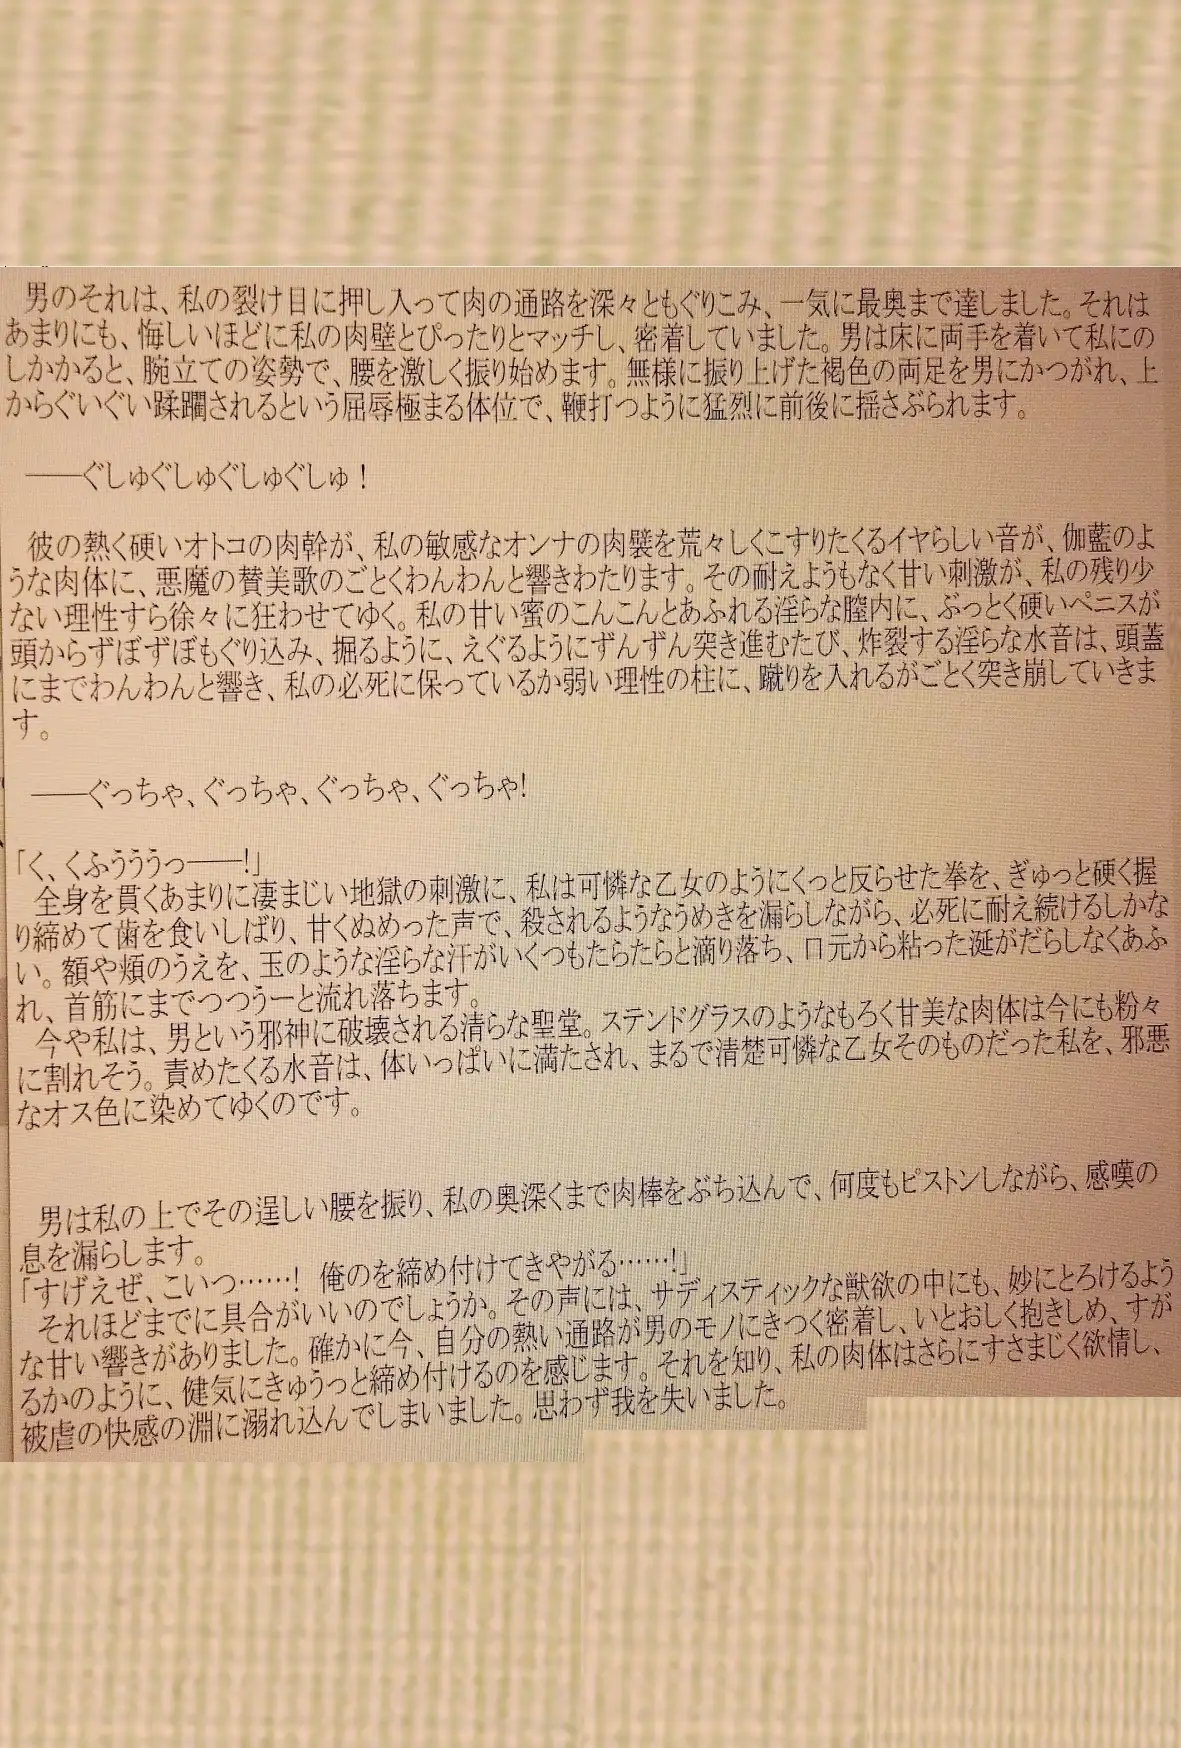 男のそれは、私の裂け目に押し入って肉の通路を深々ともぐりこみ、一気に最奥まで達しました。それは
あまりにも、悔しいほどに私の肉壁とぴったりとマッチし、密着していました。男は床に両手を着いて私にの
しかかると、腕立ての姿勢で、腰を激しく振り始めます。無様に振り上げた褐色の両足を男にかつがれ、上
からぐいぐい蹂躙されるという屈辱極まる体位で、鞭打つように猛烈に前後に揺さぶられます。
――ぐしゅぐしゅぐしゅぐしゅ!
彼の熱く硬いオトコの肉幹が、私の敏感なオンナの肉襞を荒々しくこすりたくるイヤらしい音が、伽藍のよ
うな肉体に、悪魔の賛美歌のごとくわんわんと響きわたります。その耐えようもなく甘い刺激が、私の残り少
ない理性すら徐々に狂わせてゆく。私の甘い蜜のこんこんとあふれる淫らな膣内に、ぶっとく硬いペニスが
頭からずぼずぼもぐり込み、掘るように、えぐるようにずんずん突き進むたび、炸裂する淫らな水音は、頭蓋
にまでわんわんと響き、私の必死に保っているか弱い理性の柱に、蹴りを入れるがごとく突き崩していきま
す。
――ぐっちゃ、ぐっちゃ、ぐっちゃ、ぐっちゃ!
「く、くふうううっ――!」
全身を貫くあまりに凄まじい地獄の刺激に、私は可憐な乙女のようにくっと反らせた拳を、ぎゅっと硬く握
り締めて歯を食いしばり、甘くぬめった声で、殺されるようなうめきを漏らしながら、必死に耐え続けるしかな
い。額や頬のうえを、玉のような淫らな汗がいくつもたらたらと滴り落ち、口元から粘った涎がだらしなくあふ
れ、首筋にまでつつうーと流れ落ちます。
今や私は、男という邪神に破壊される清らな聖堂。ステンドグラスのようなもろく甘美な肉体は今にも粉々
に割れそう。責めたくる水音は、体いっぱいに満たされ、まるで清楚可憐な乙女そのものだった私を、邪悪
なオス色に染めてゆくのです。
男は私の上でその逞しい腰を振り、私の奥深くまで肉棒をぶち込んで、何度もピストンしながら、感嘆の
息を漏らします。
「すげえぜ、こいつ……! 俺のを締め付けてきやがる……!」
それほどまでに具合がいいのでしょうか。その声には、サディスティックな獣欲の中にも、妙にとろけるよう
な甘い響きがありました。確かに今、自分の熱い通路が男のモノにきつく密着し、いとおしく抱きしめ、すが
るかのように、健気にきゅうっと締め付けるのを感じます。それを知り、私の肉体はさらにすさまじく欲情し、
被虐の快感の淵に溺れ込んでしまいました。思わず我を失いました。